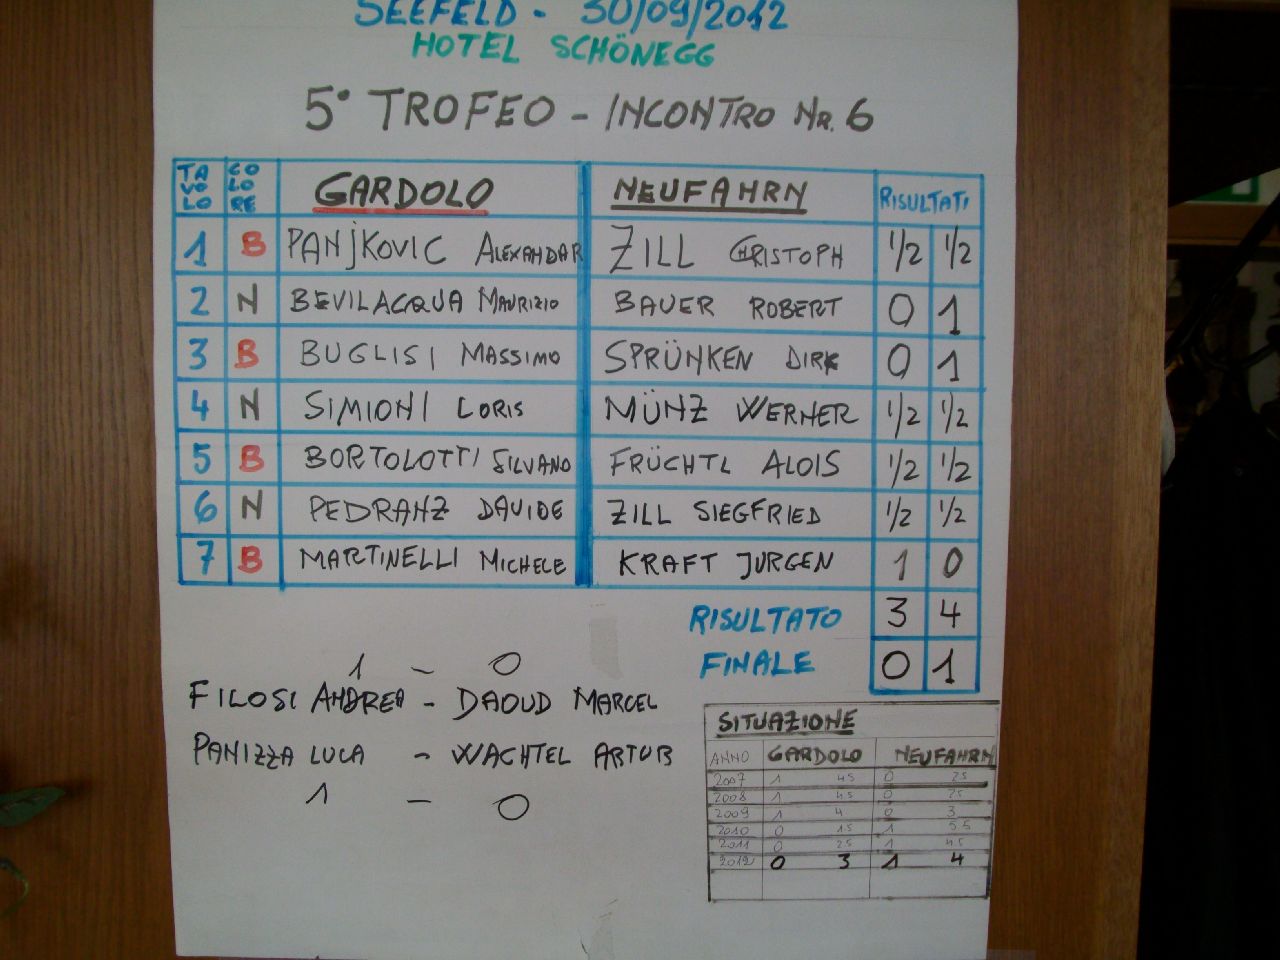 SEEFELD - 30/09/2012
HOTEL SCHÖNEGG
5° TROFEO - INCONTRO NR. 6
TAVOLO COLORE GARDOLO NEUFAHRN RISULTATI
1 B PANJKOVIC ALEXANDAR ZILL CHRISTOPH 1/2 1/2
2 N BEVILACQUA MAURIZIO BAUER ROBERT 0 1
3 B BUGLISI MASSIMO SPRÜNKEN DIRK 0 1
4 N SIMIONI LORIS MÜNZ WERNER 1/2 1/2
5 B BORTOLOTTI SILVANO FRÜCHTL ALOIS 1/2 1/2
6 N PEDRANZ DAVIDE ZILL SIEGFRIED 1/2 1/2
7 B MARTINELLI MICHELE KRAFT JURGEN 1 0
RISULTATO 3 4
FINALE 0 1
1 - 0
FILOSI ANDREA - DAOUD MARCEL
PANIZZA LUCA - WACHTEL ARTUR
1 - 0
SITUAZIONE
ANNO GARDOLO NEUFAHRN
2007 1 45 0 25
2008 1 45 0 25
2009 1 4 0 3
2010 0 15 1 5.5
2011 0 25 1 45
2012 0 3 1 4